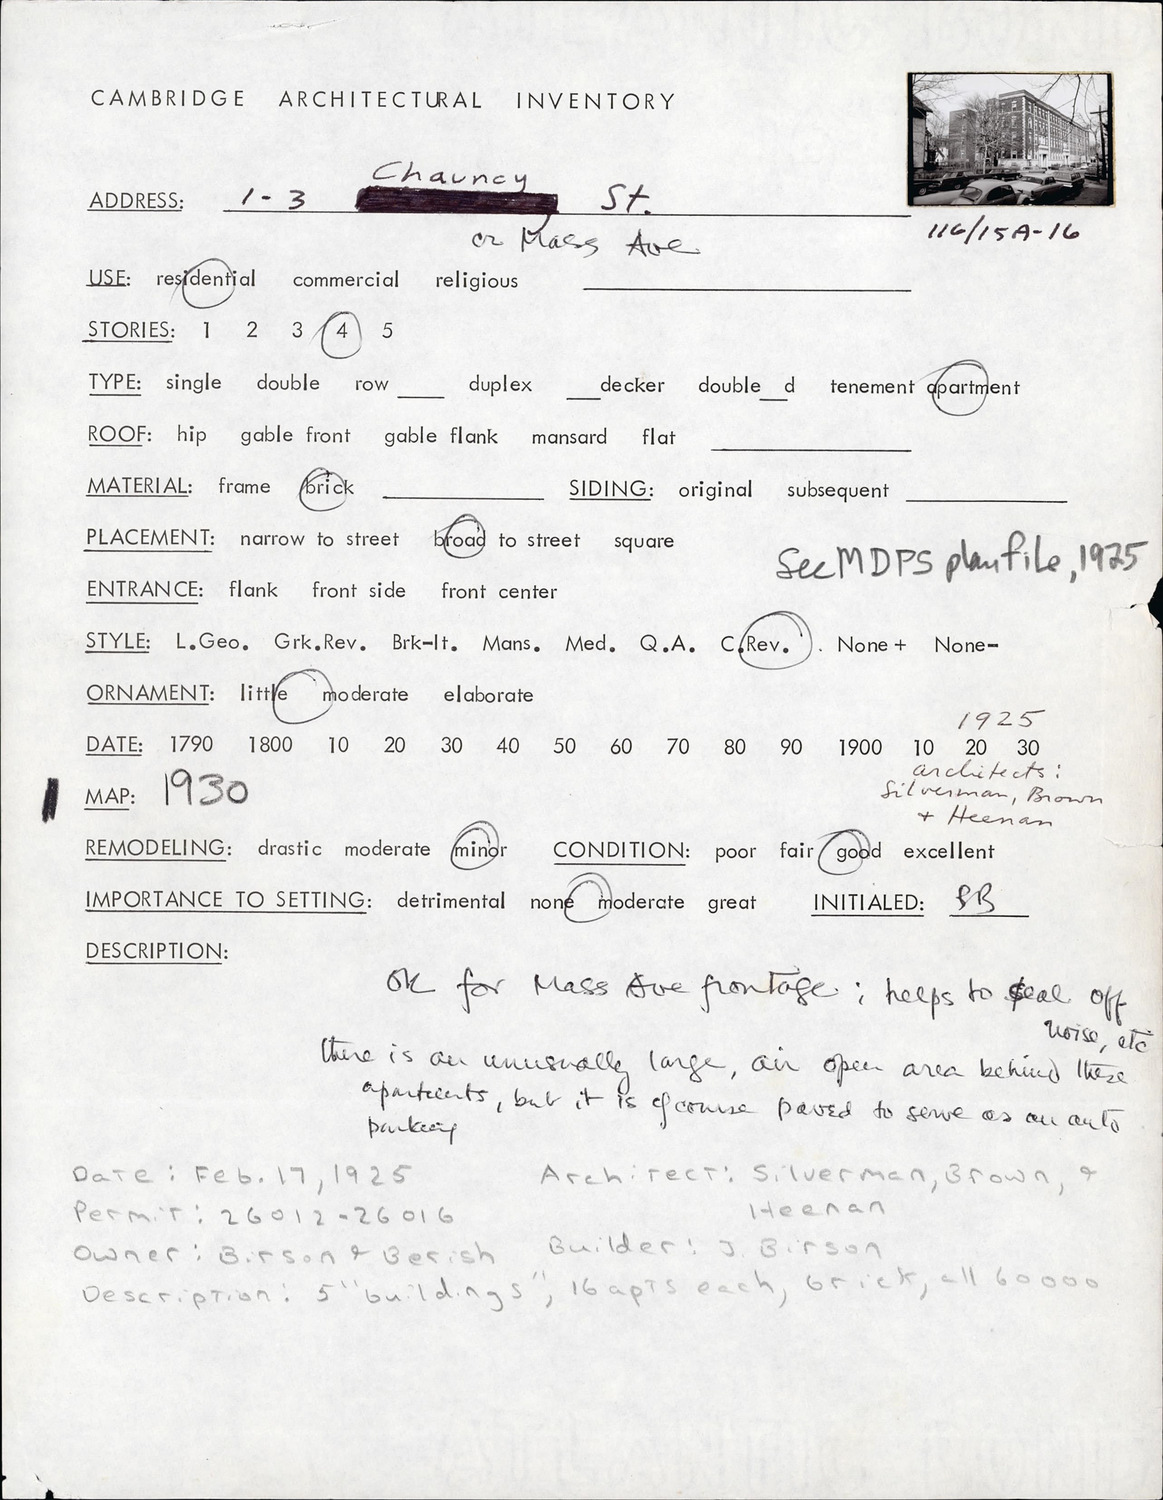 CAMBRIDGE ARCHITECTURAL INVENTORY
Chauncy
ADDRESS: 1-3 St.
or Mass Ave
116/15A-16
USE: residential commercial religious
STORIES: 1 2 3 4 5
TYPE: single double row ___ duplex ___decker double__d tenement apartment
ROOF: hip gable front gable flank mansard flat
MATERIAL: frame brick SIDING: original subsequent
PLACEMENT: narrow to street broad to street square
See MDPS plan file, 1925
ENTRANCE: flank front side front center
STYLE: L.Geo. Grk.Rev. Brk-It. Mans. Med. Q.A. C.Rev. . None+ None-
ORNAMENT: little moderate elaborate
1925
DATE: 1790 1800 10 20 30 40 50 60 70 80 90 1900 10 20 30
architects:
Silverman, Brown
+ Heenan
MAP: 1930
REMODELING: drastic moderate minor CONDITION: poor fair good excellent
IMPORTANCE TO SETTING: detrimental none moderate great INITIALED: BB
DESCRIPTION:
OK for Mass Ave frontage; helps to seal off
noise, etc
there is an unusually large, air open area behind these
apartments, but it is of course paved to serve as an auto
parking
Date: Feb. 17, 1925 Architect: Silverman, Brown, &
Heenan
Permit: 26012-26016
Owner: Birson & Berish Builder: J. Birson
Description: 5 "buildings", 16 apts each, brick, all 60000